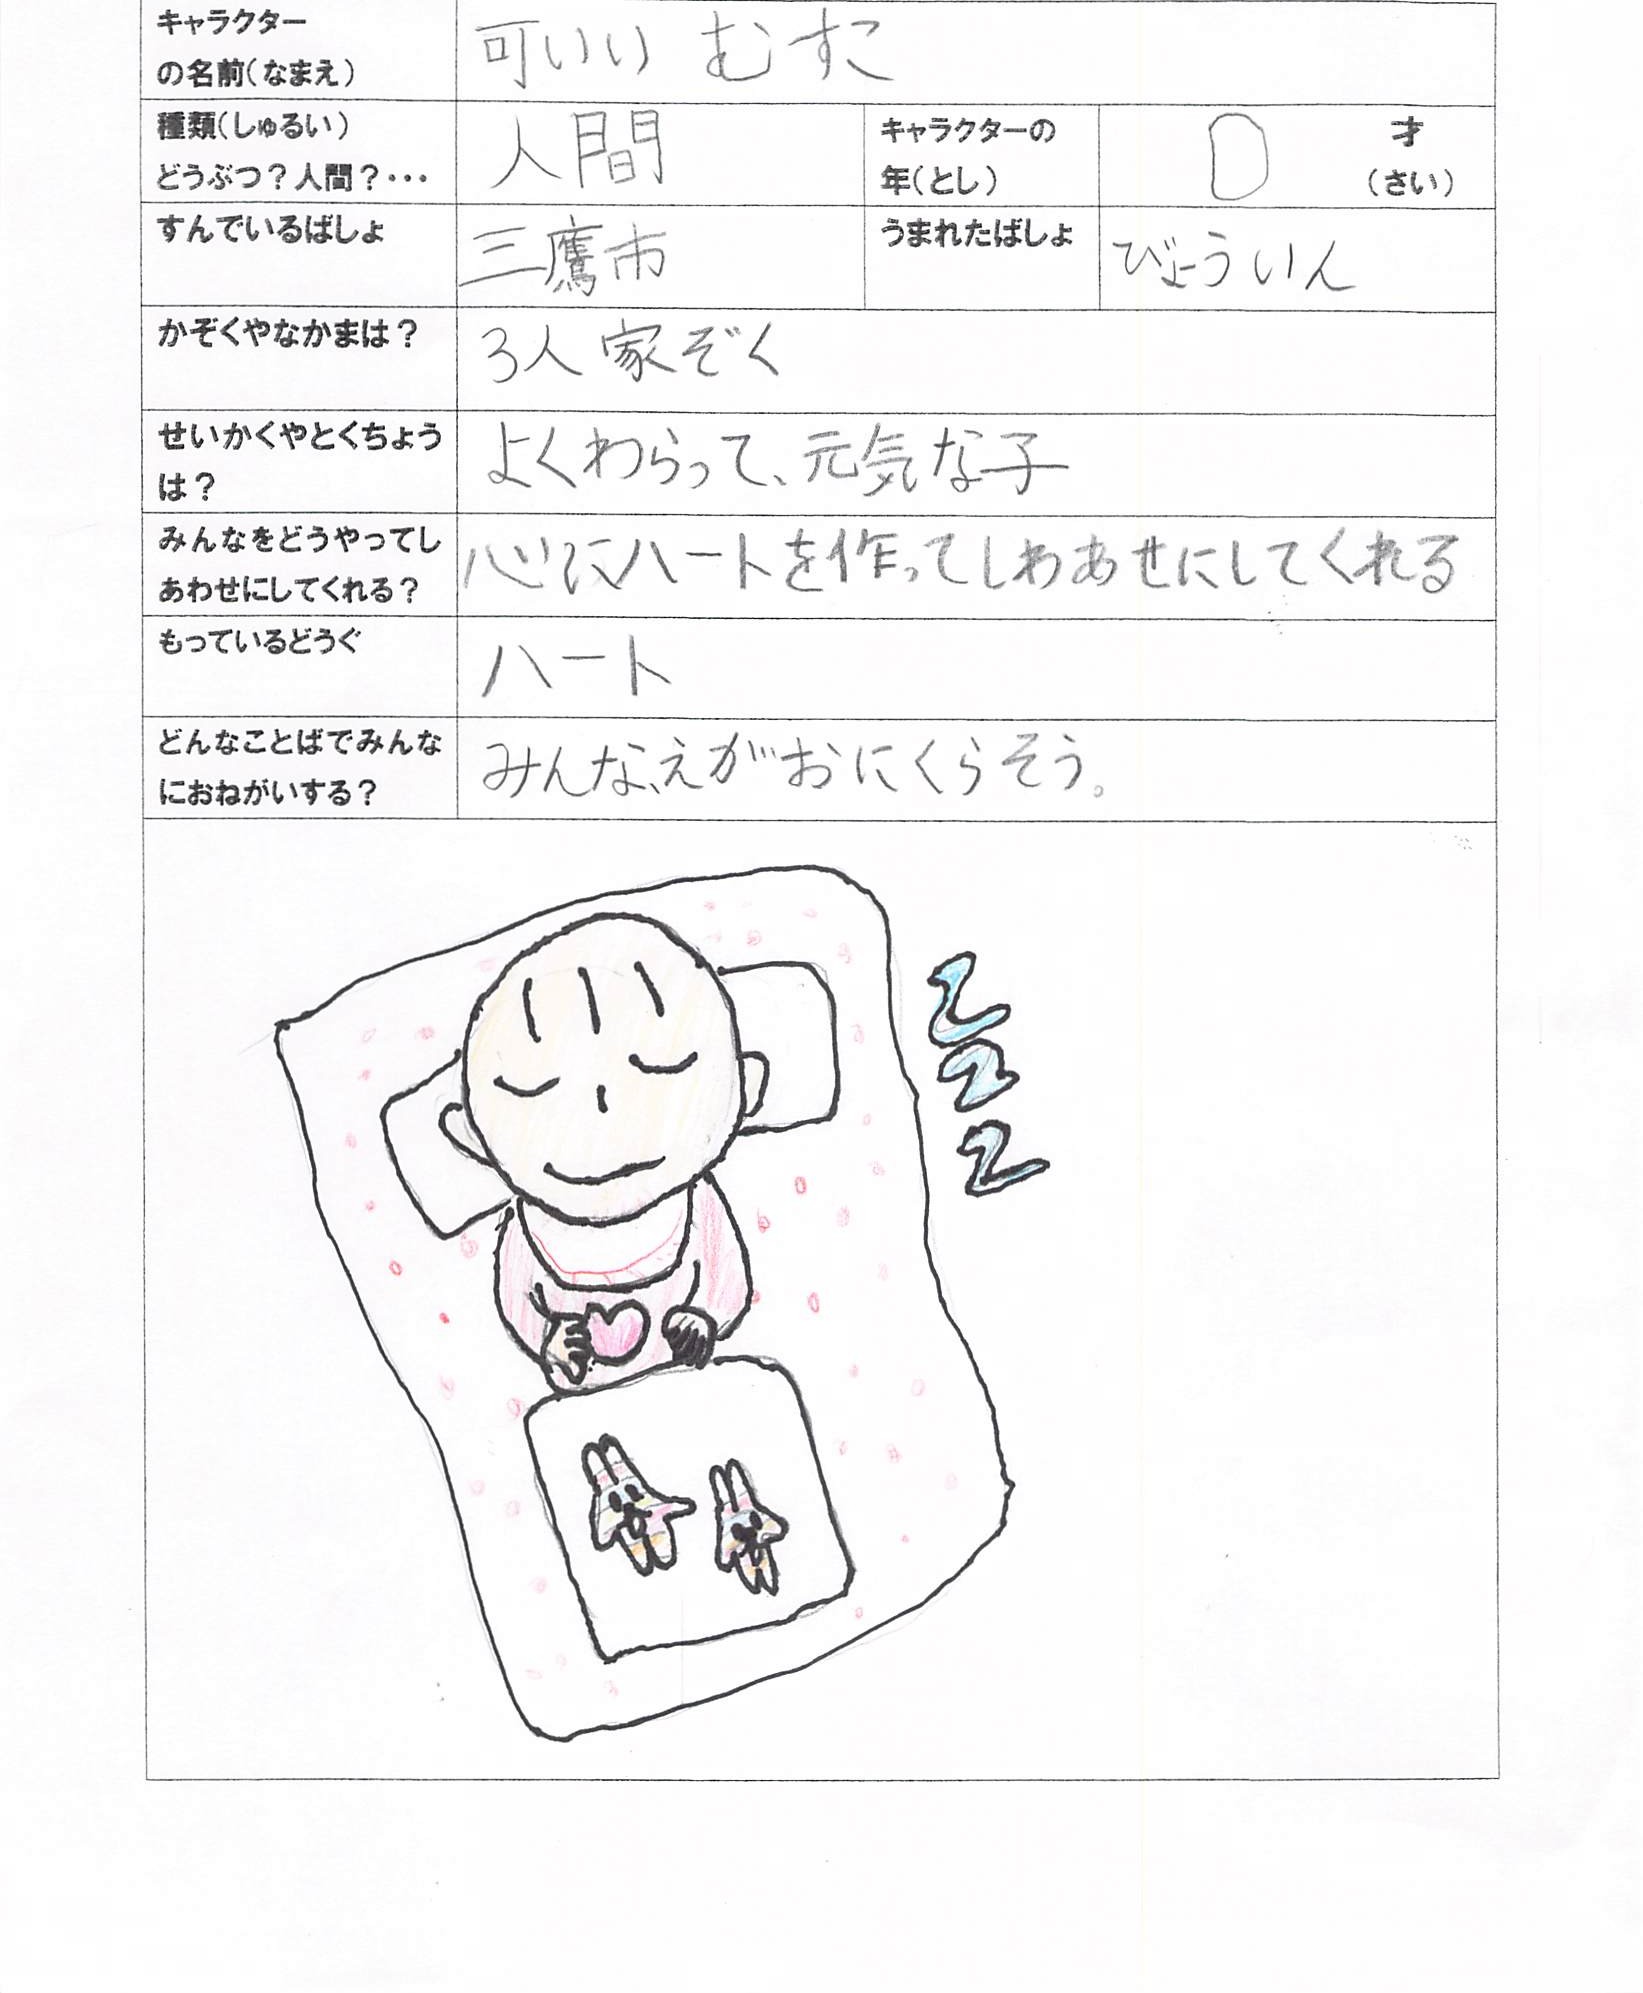 キャラクター
の名前(なまえ)
可いい むすこ
種類(しゅるい)
どうぶつ?人間?・・・
人間
キャラクターの
年(とし)
0
才
(さい)
すんでいるばしょ
三鷹市
うまれたばしょ
びょういん
かぞくやなかまは?
3人家ぞく
せいかくやとくちょう
は?
よくわらって、元気な子
みんなをどうやってし
あわせにしてくれる?
心にハートを作ってしわあせにしてくれる
もっているどうぐ
ハート
どんなことばでみんな
におねがいする?
みんな、えがおにくらそう。
z
z
z